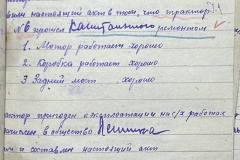 настоящий акт в том, что трактор
№6 прошел капитальным ремонтом
1. Мотор работает хорошо
2. Коробка работает хорошо
3. Задний мост хорошо
трактор пригоден к эксплоатации на с/х работах
в общество Ленина
и составлен настоящий акт